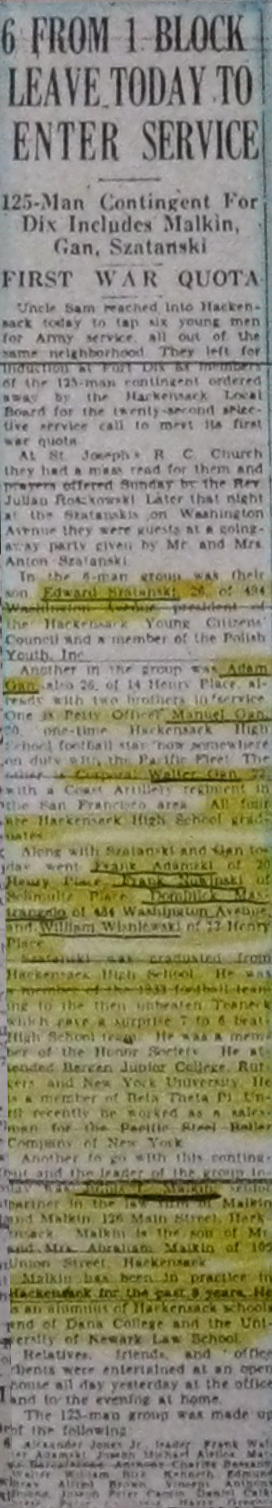 6 FROM 1 BLOCK
LEAVE TODAY TO
ENTER SERVICE
125-Man Contingent For
Dix Includes Malkin,
Gan, Szatanski
FIRST WAR QUOTA
Uncle Sam reached into Hacken-
sack today to tap six young men
for Army service, all out of the
same neighborhood. They left for
induction at Fort Dix as members
of the 125-man contingent ordered
away by the Hackensack Local
Board for the twenty-second selec-
tive service call to meet its first
war quota.
At St. Joseph's R. C. Church
they had a mass read for them and
prayers offered Sunday by the Rev.
Julian Later that night
at the Szatanskis on Washington
Avenue they were guests at a going-
away party given by Mr. and Mrs.
Anton Szatanski.
In the 6-man group was their
son Edward Szatanski, 26, of 494
Washington Avenue, president of
the Hackensack Young Citizens'
Council and a member of the Polish
Youth, Inc.
Another in the group was Adam
Gan, also 26, of 14 Henry Place, al-
ready with two brothers in service.
One is Petty Officer Manuel Gan,
20, one-time Hackensack High
School football star now somewhere
on duty with the Pacific Fleet. The
other is Corporal Walter Gan, 22,
with a Coast Artillery regiment in
the San Francisco area. All four
are Hackensack High School grad-
uates.
Along with Szatanski and Gan to-
day went Frank Adamski of 20
Henry Place, Frank of
Place, Dominick Mas-
trangelo of 484 Washington Avenue,
and William Wisniewski of 22 Henry
Place.
Szatanski was graduated from
Hackensack High School. He was
a member of the 1933 football team
ing to the then unbeaten Teaneck
which gave a surprise 7 to 6 beat-
High School team. He was a mem-
ber of the Honor Society. He at-
tended Bergen Junior College, Rut-
gers and New York University. He
is a member of Beta Theta Pi. Un-
til recently he worked as a sales-
man for the Pacific Steel Boiler
Company of New York.
Another to go with this contin-
gent and the leader of the group to-
day was Malkin, senior
partner in the law firm of Malkin
and Malkin, 126 Main Street, Hack-
ensack. Malkin is the son of Mr.
and Mrs. Abraham Malkin of 109
Union Street, Hackensack.
Malkin has been in practice in
Hackensack for the past 9 years. He
is an alumnus of Hackensack schools
and of Dana College and the Uni-
versity of Newark Law School.
Relatives, friends, and office
clients were entertained at an open
house all day yesterday at the office
and in the evening at home.
The 123-man group was made up
of the following:
Alexander Jones Jr., leader, Frank